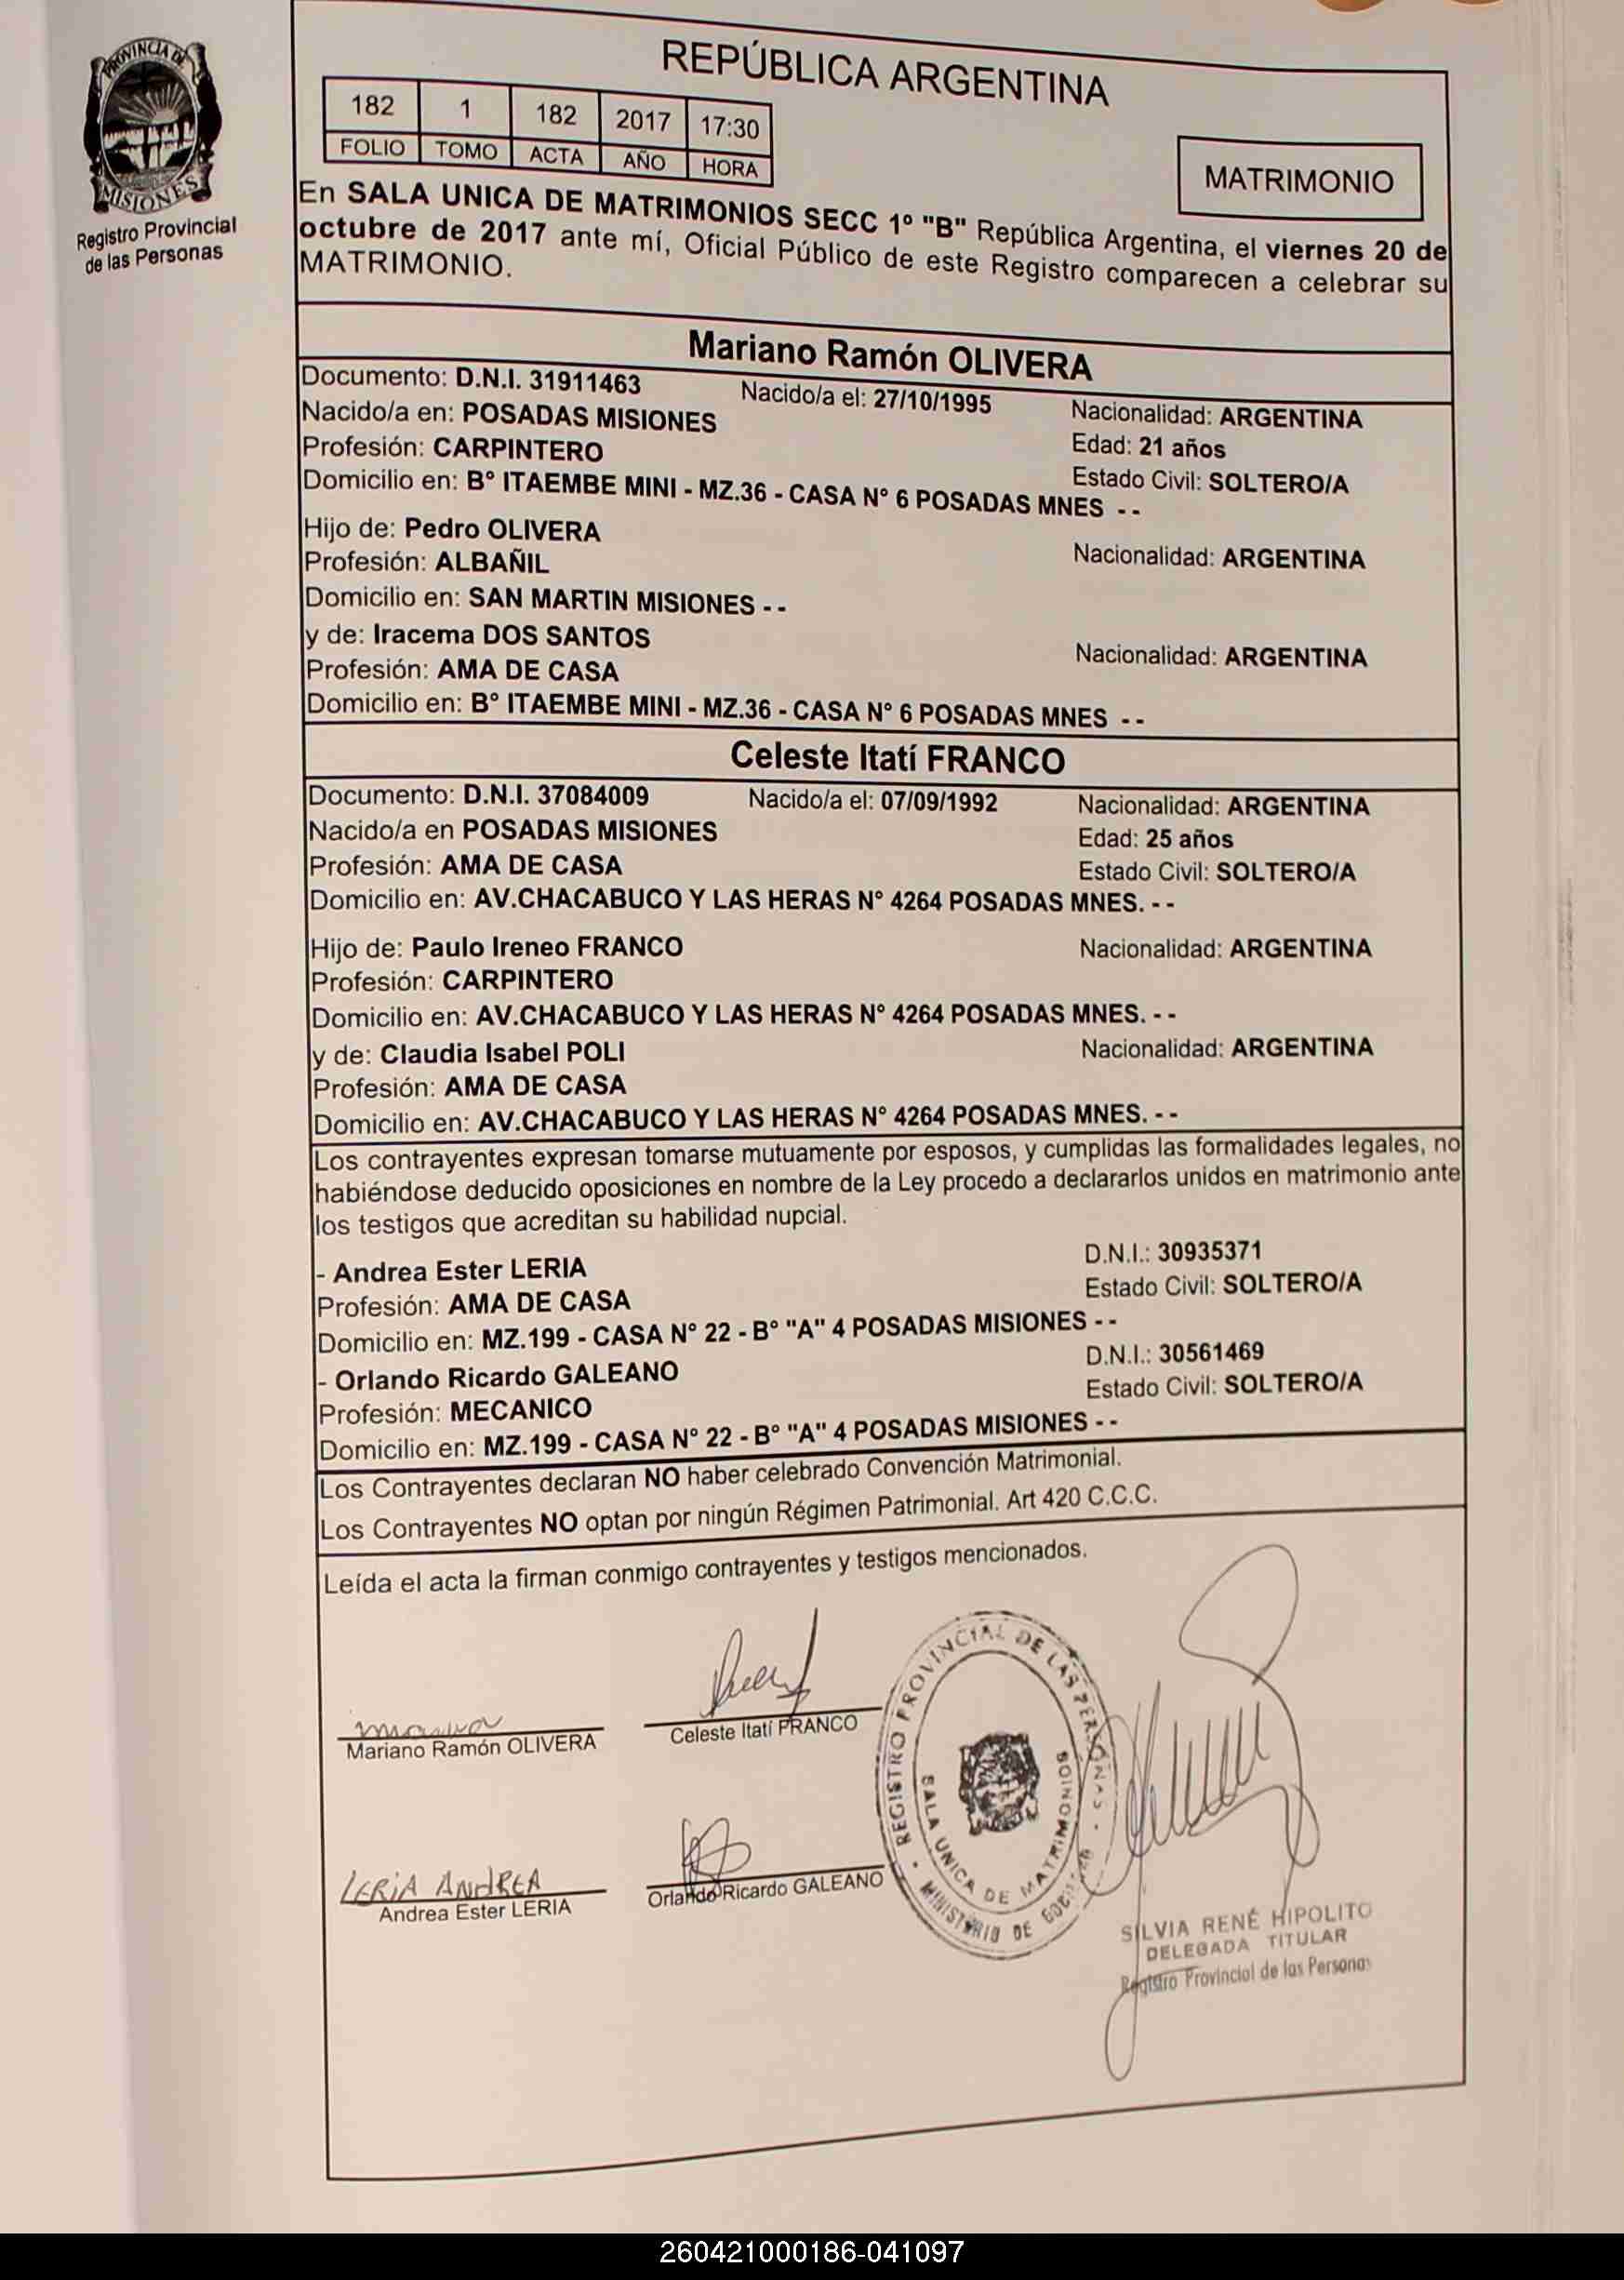 PROVINCIA DE
MISIONES
Registro Provincial
de las Personas
REPÚBLICA ARGENTINA
182 1 182 2017 17:30
FOLIO TOMO ACTA AÑO HORA
MATRIMONIO
En SALA UNICA DE MATRIMONIOS SECC 1º "B" República Argentina, el viernes 20 de
octubre de 2017 ante mí, Oficial Público de este Registro comparecen a celebrar su
MATRIMONIO.
Mariano Ramón OLIVERA
Documento: D.N.I. 31911463 Nacido/a el: 27/10/1995 Nacionalidad: ARGENTINA
Nacido/a en: POSADAS MISIONES Edad: 21 años
Profesión: CARPINTERO Estado Civil: SOLTERO/A
Domicilio en: Bº ITAEMBE MINI - MZ.36 - CASA Nº 6 POSADAS MNES - -
Hijo de: Pedro OLIVERA Nacionalidad: ARGENTINA
Profesión: ALBAÑIL
Domicilio en: SAN MARTIN MISIONES - -
y de: Iracema DOS SANTOS Nacionalidad: ARGENTINA
Profesión: AMA DE CASA
Domicilio en: Bº ITAEMBE MINI - MZ.36 - CASA Nº 6 POSADAS MNES - -
Celeste Itatí FRANCO
Documento: D.N.I. 37084009 Nacido/a el: 07/09/1992 Nacionalidad: ARGENTINA
Nacido/a en POSADAS MISIONES Edad: 25 años
Profesión: AMA DE CASA Estado Civil: SOLTERO/A
Domicilio en: AV.CHACABUCO Y LAS HERAS Nº 4264 POSADAS MNES. - -
Hijo de: Paulo Ireneo FRANCO Nacionalidad: ARGENTINA
Profesión: CARPINTERO
Domicilio en: AV.CHACABUCO Y LAS HERAS Nº 4264 POSADAS MNES. - -
y de: Claudia Isabel POLI Nacionalidad: ARGENTINA
Profesión: AMA DE CASA
Domicilio en: AV.CHACABUCO Y LAS HERAS Nº 4264 POSADAS MNES. - -
Los contrayentes expresan tomarse mutuamente por esposos, y cumplidas las formalidades legales, no
habiéndose deducido oposiciones en nombre de la Ley procedo a declararlos unidos en matrimonio ante
los testigos que acreditan su habilidad nupcial.
- Andrea Ester LERIA D.N.I.: 30935371
Profesión: AMA DE CASA Estado Civil: SOLTERO/A
Domicilio en: MZ.199 - CASA Nº 22 - Bº "A" 4 POSADAS MISIONES - -
- Orlando Ricardo GALEANO D.N.I.: 30561469
Profesión: MECANICO Estado Civil: SOLTERO/A
Domicilio en: MZ.199 - CASA Nº 22 - Bº "A" 4 POSADAS MISIONES - -
Los Contrayentes declaran NO haber celebrado Convención Matrimonial.
Los Contrayentes NO optan por ningún Régimen Patrimonial. Art 420 C.C.C.
Leída el acta la firman conmigo contrayentes y testigos mencionados.
Mariano Ramón OLIVERA
Celeste Itatí FRANCO
LERIA ANDREA
Andrea Ester LERIA
Orlando Ricardo GALEANO
REGISTRO PROVINCIAL DE LAS PERSONAS
SALA UNICA DE MATRIMONIOS
MINISTERIO DE
SILVIA RENÉ HIPOLITO
DELEGADA TITULAR
Registro Provincial de las Personas
260421000186-041097